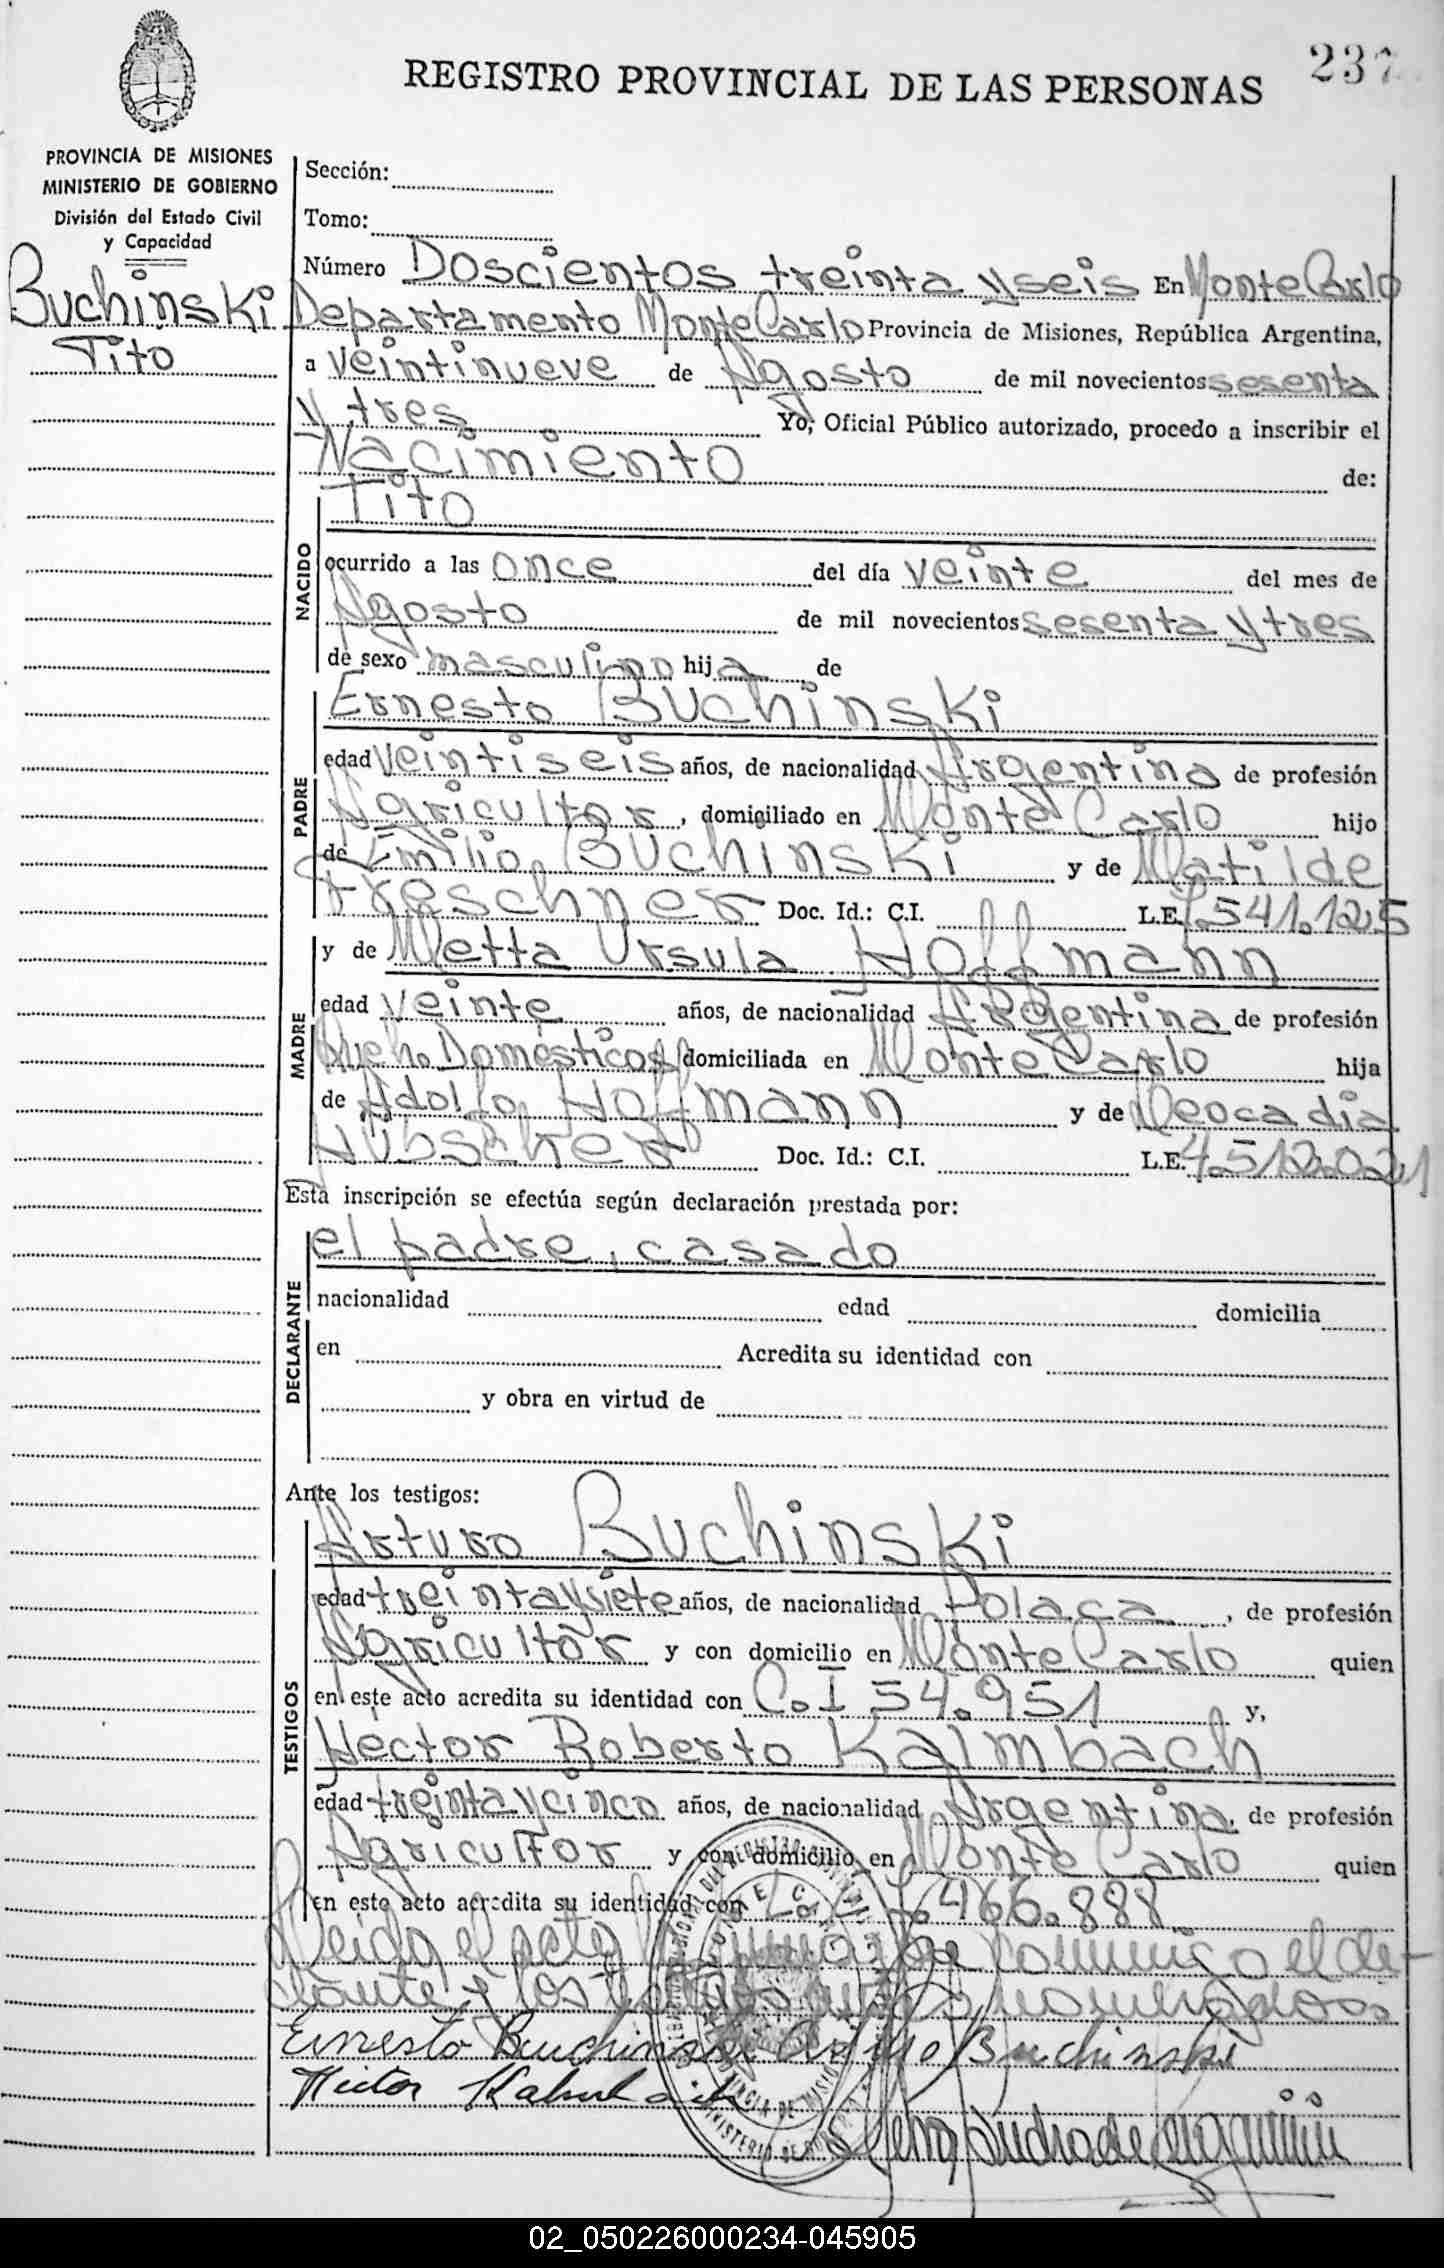 REGISTRO PROVINCIAL DE LAS PERSONAS
237
PROVINCIA DE MISIONES
MINISTERIO DE GOBIERNO
División del Estado Civil
y Capacidad
Buchinski
Tito
Sección:
Tomo:
Número Doscientos treinta y seis En Monte Carlo
Departamento Monte Carlo Provincia de Misiones, República Argentina,
a veintinueve de Agosto de mil novecientos sesenta
y tres Yo, Oficial Público autorizado, procedo a inscribir el
Nacimiento de:
NACIDO
Tito
ocurrido a las once del día veinte del mes de
Agosto de mil novecientos sesenta y tres
de sexo masculino hija de
PADRE
Ernesto Buchinski
edad veintiseis años, de nacionalidad Argentina de profesión
Agricultor, domiciliado en Monte Carlo hijo
de Emilio Buchinski y de Matilde
Treschner Doc. Id.: C.I. L.E. 7.541.125
MADRE
y de Metta Ursula Hoffmann
edad veinte años, de nacionalidad Argentina de profesión
Queh. Domésticos domiciliada en Monte Carlo hija
de Adolfo Hoffmann y de Leocadia
Hübscher Doc. Id.: C.I. L.E. 4.512.021
Esta inscripción se efectúa según declaración prestada por:
DECLARANTE
el padre, casado
nacionalidad edad domicilia
en Acredita su identidad con
y obra en virtud de
Ante los testigos:
TESTIGOS
Arturo Buchinski
edad treinta y siete años, de nacionalidad Polaca, de profesión
Agricultor y con domicilio en Monte Carlo quien
en este acto acredita su identidad con C.I 54.951 y,
Héctor Roberto Kalmbach
edad treinta y cinco años, de nacionalidad Argentina, de profesión
Agricultor y con domicilio en Monte Carlo quien
en este acto acredita su identidad con L.E. 7.466.888
Leida el acta firman de comun el de-
clarante y los testigos nombrados
Ernesto Buchinski Arturo Buchinski
Hector Kalmbach
02_050226000234-045905